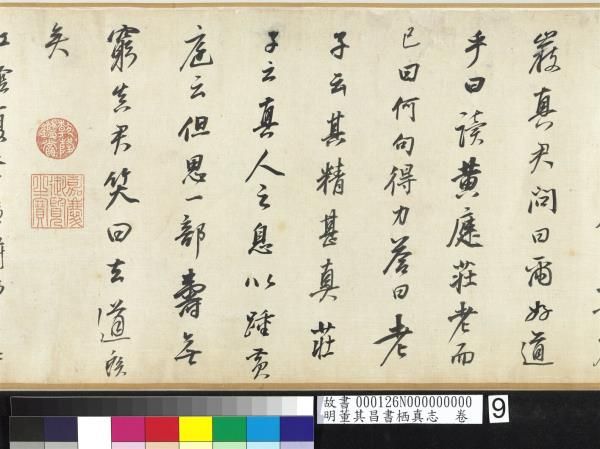 嚴真君問曰爾好道
乎曰讀黃庭莊老而
已曰何句得力答曰老
子云其精甚真莊
子云真人之息以踵黃
庭云但思一部壽無
窮真君笑曰去道
矣
乾隆鑑賞
嘉慶御覽之寶
故書 000126N000000000
明董其昌書栖真志 卷
9